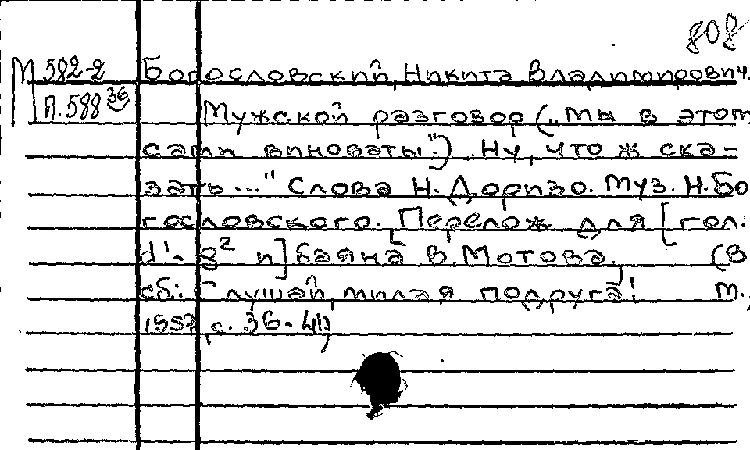 808
М 582-2 Богословский, Никита Владимирович.
П.588 36 Мужской разговор („Мы в этом
сами виноваты.") „Ну, что ж ска-
зать..." Слова Н. Доризо. Муз. Н. Бо
гословского. [Перелож для [гол:
d¹-g² и] баяна В. Мотова. (В
сб: Слушай, милая подруга! М.,
1957, с. 36-41)